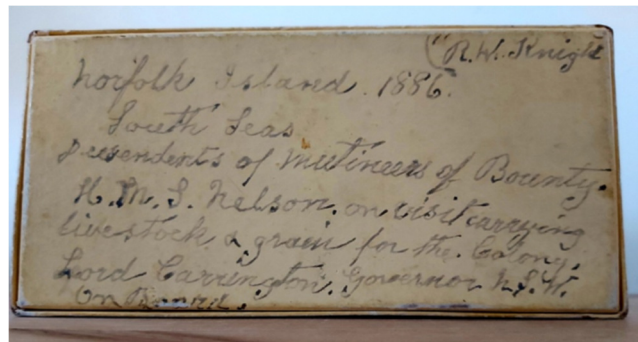 ("R.W. Knight
Norfolk Island. 1886.
South Seas
Descendents of Mutineers of Bounty.
H.M.S. Nelson, on visit carrying
livestock, & grain for the Colony,
Lord Carrington, Governor N.S.W.
On Board.